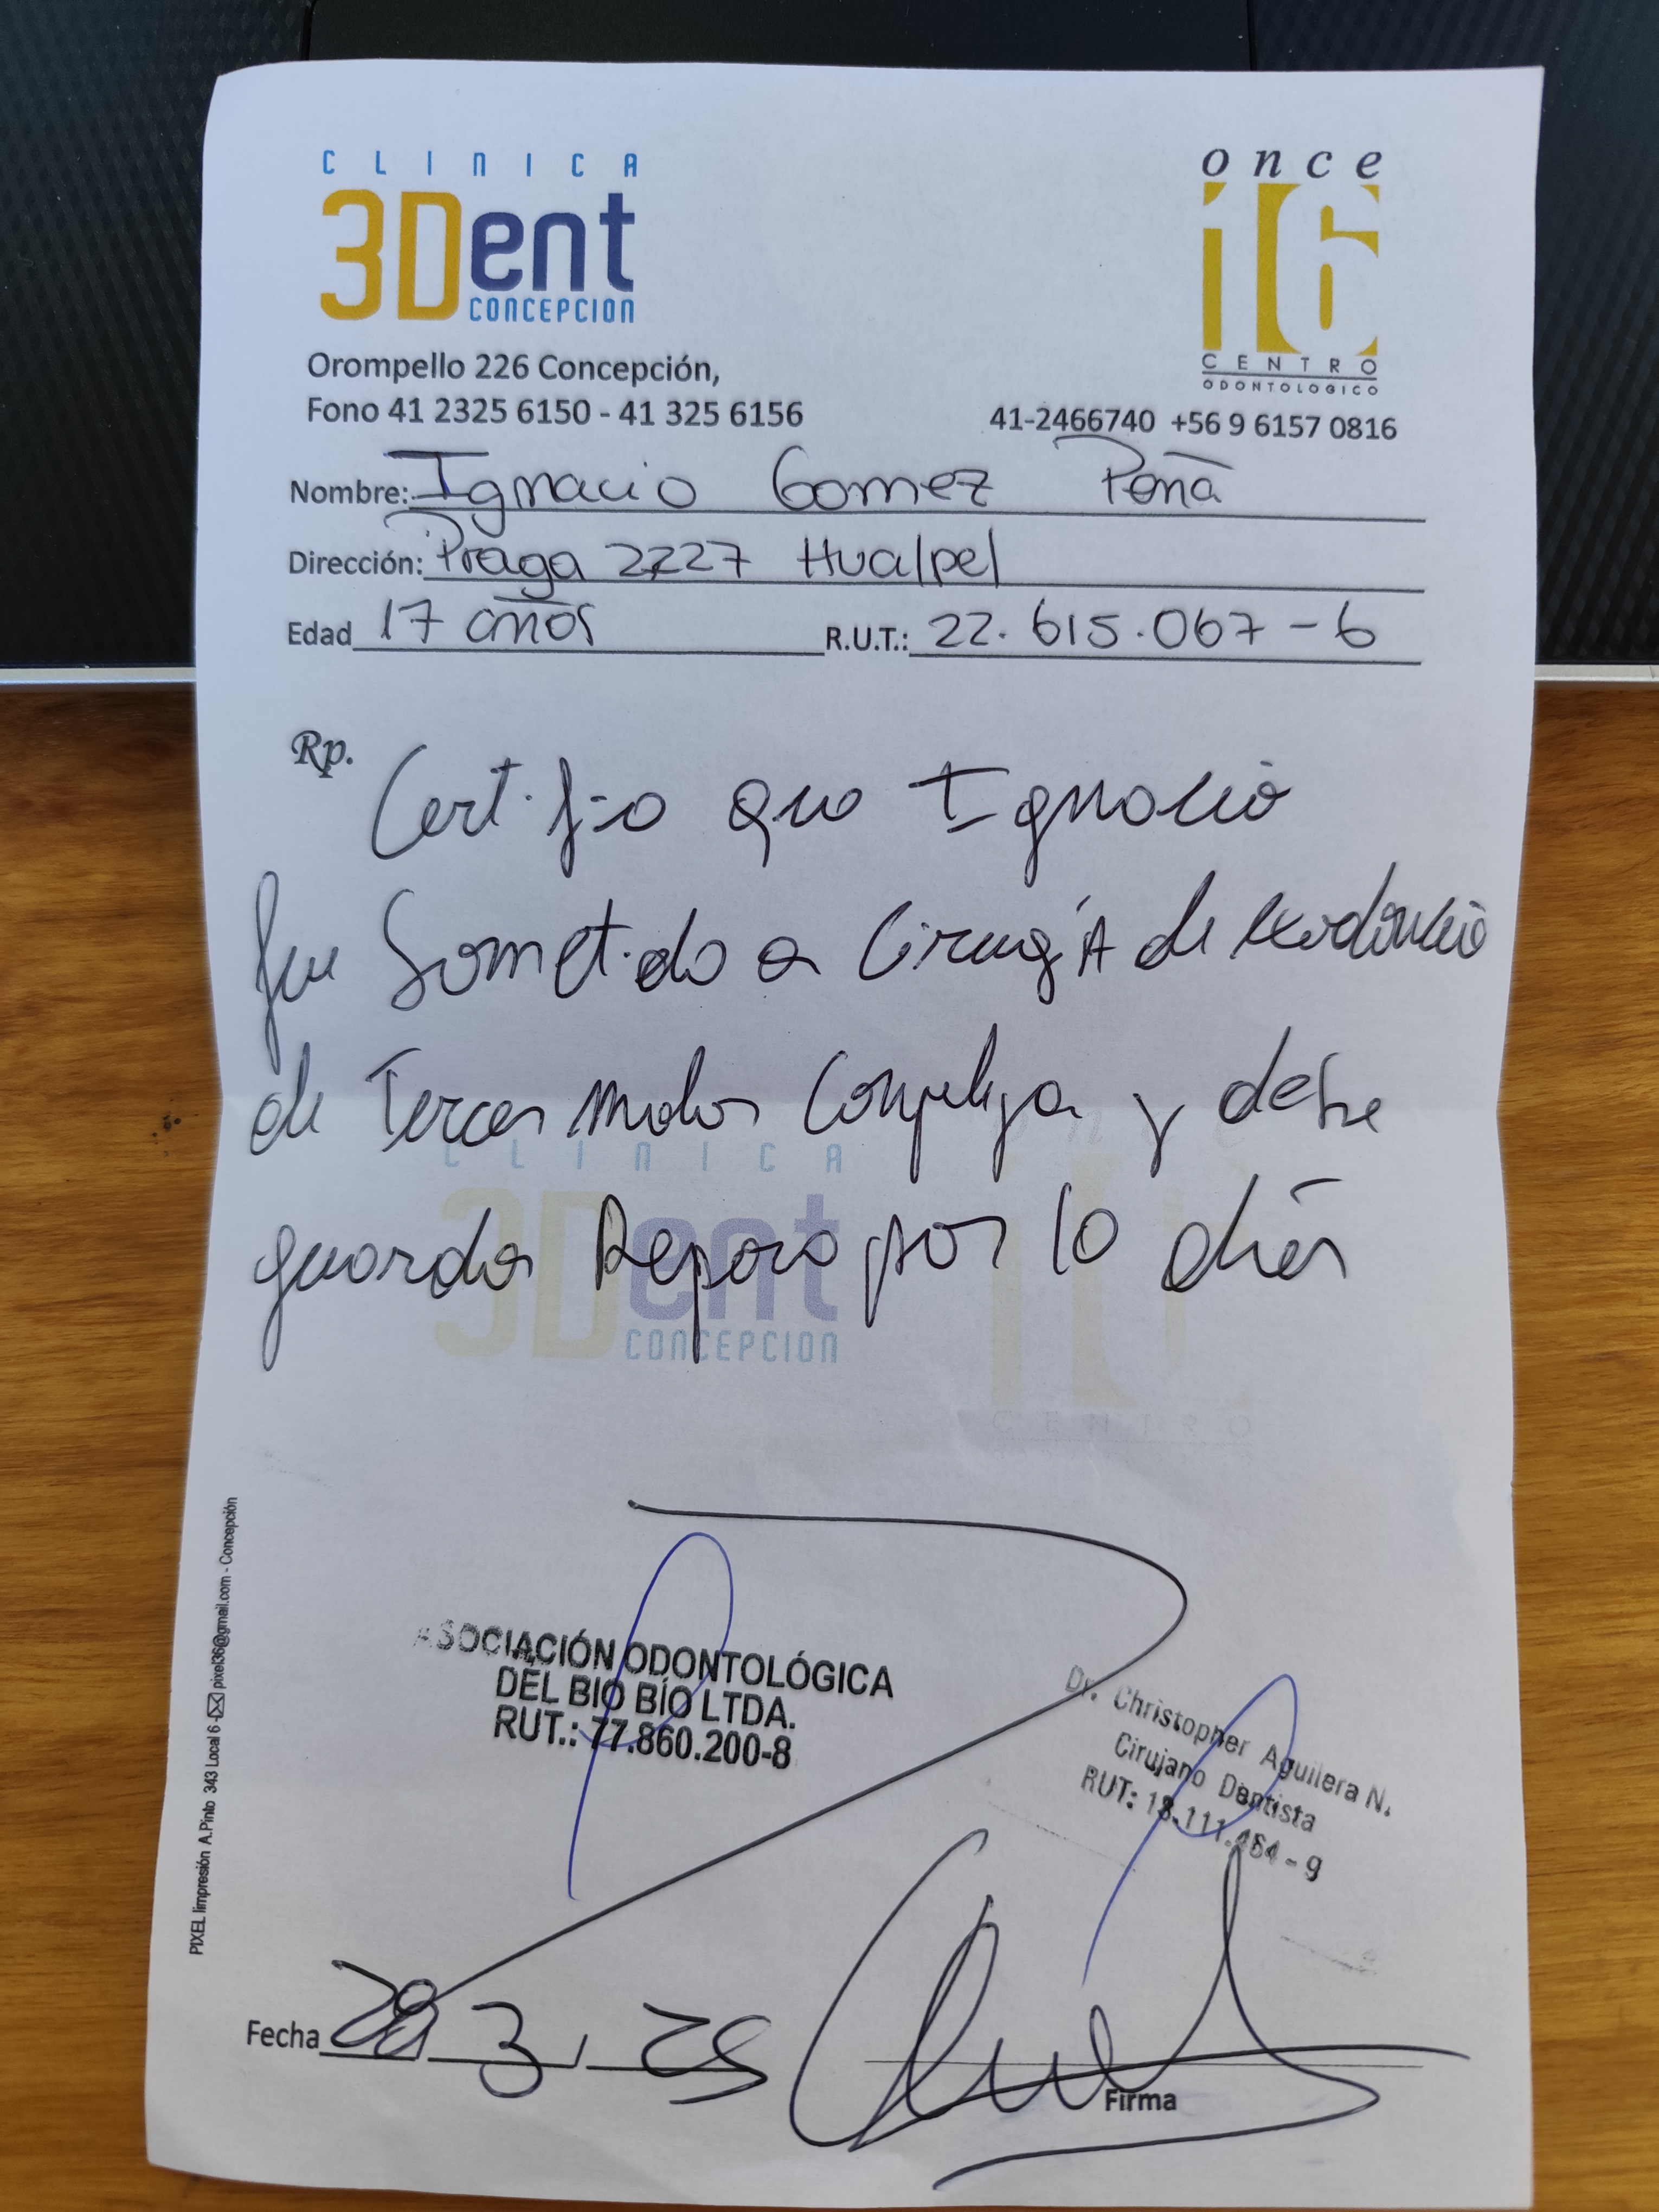 CLINICA
3Dent
CONCEPCION
once
16
CENTRO
ODONTOLOGICO
Orompello 226 Concepción,
Fono 41 2325 6150 - 41 325 6156
41-2466740 +56 9 6157 0816
Nombre: Ignacio Gomez Peña
Dirección: Praga 2227 Hualpel
Edad 17 años R.U.T.: 22.615.067-6
Rp.
Certifico que Ignacio
fue Sometido a Cirugía de exodoncia
de Tercer molar Compleja y debe
guardar Reposo por 10 días
CLINICA
3Dent
CONCEPCION
once
CENTRO
ASOCIACIÓN ODONTOLÓGICA
DEL BIO BÍO LTDA.
RUT.: 77.860.200-8
Dr. Christopher Aguilera N.
Cirujano Dentista
RUT: 18.111.464-9
Fecha 28 3 / 25
Firma
PIXEL Iimpresión A.Pinto 343 Local 6 - pixel36@gmail.com - Concepción